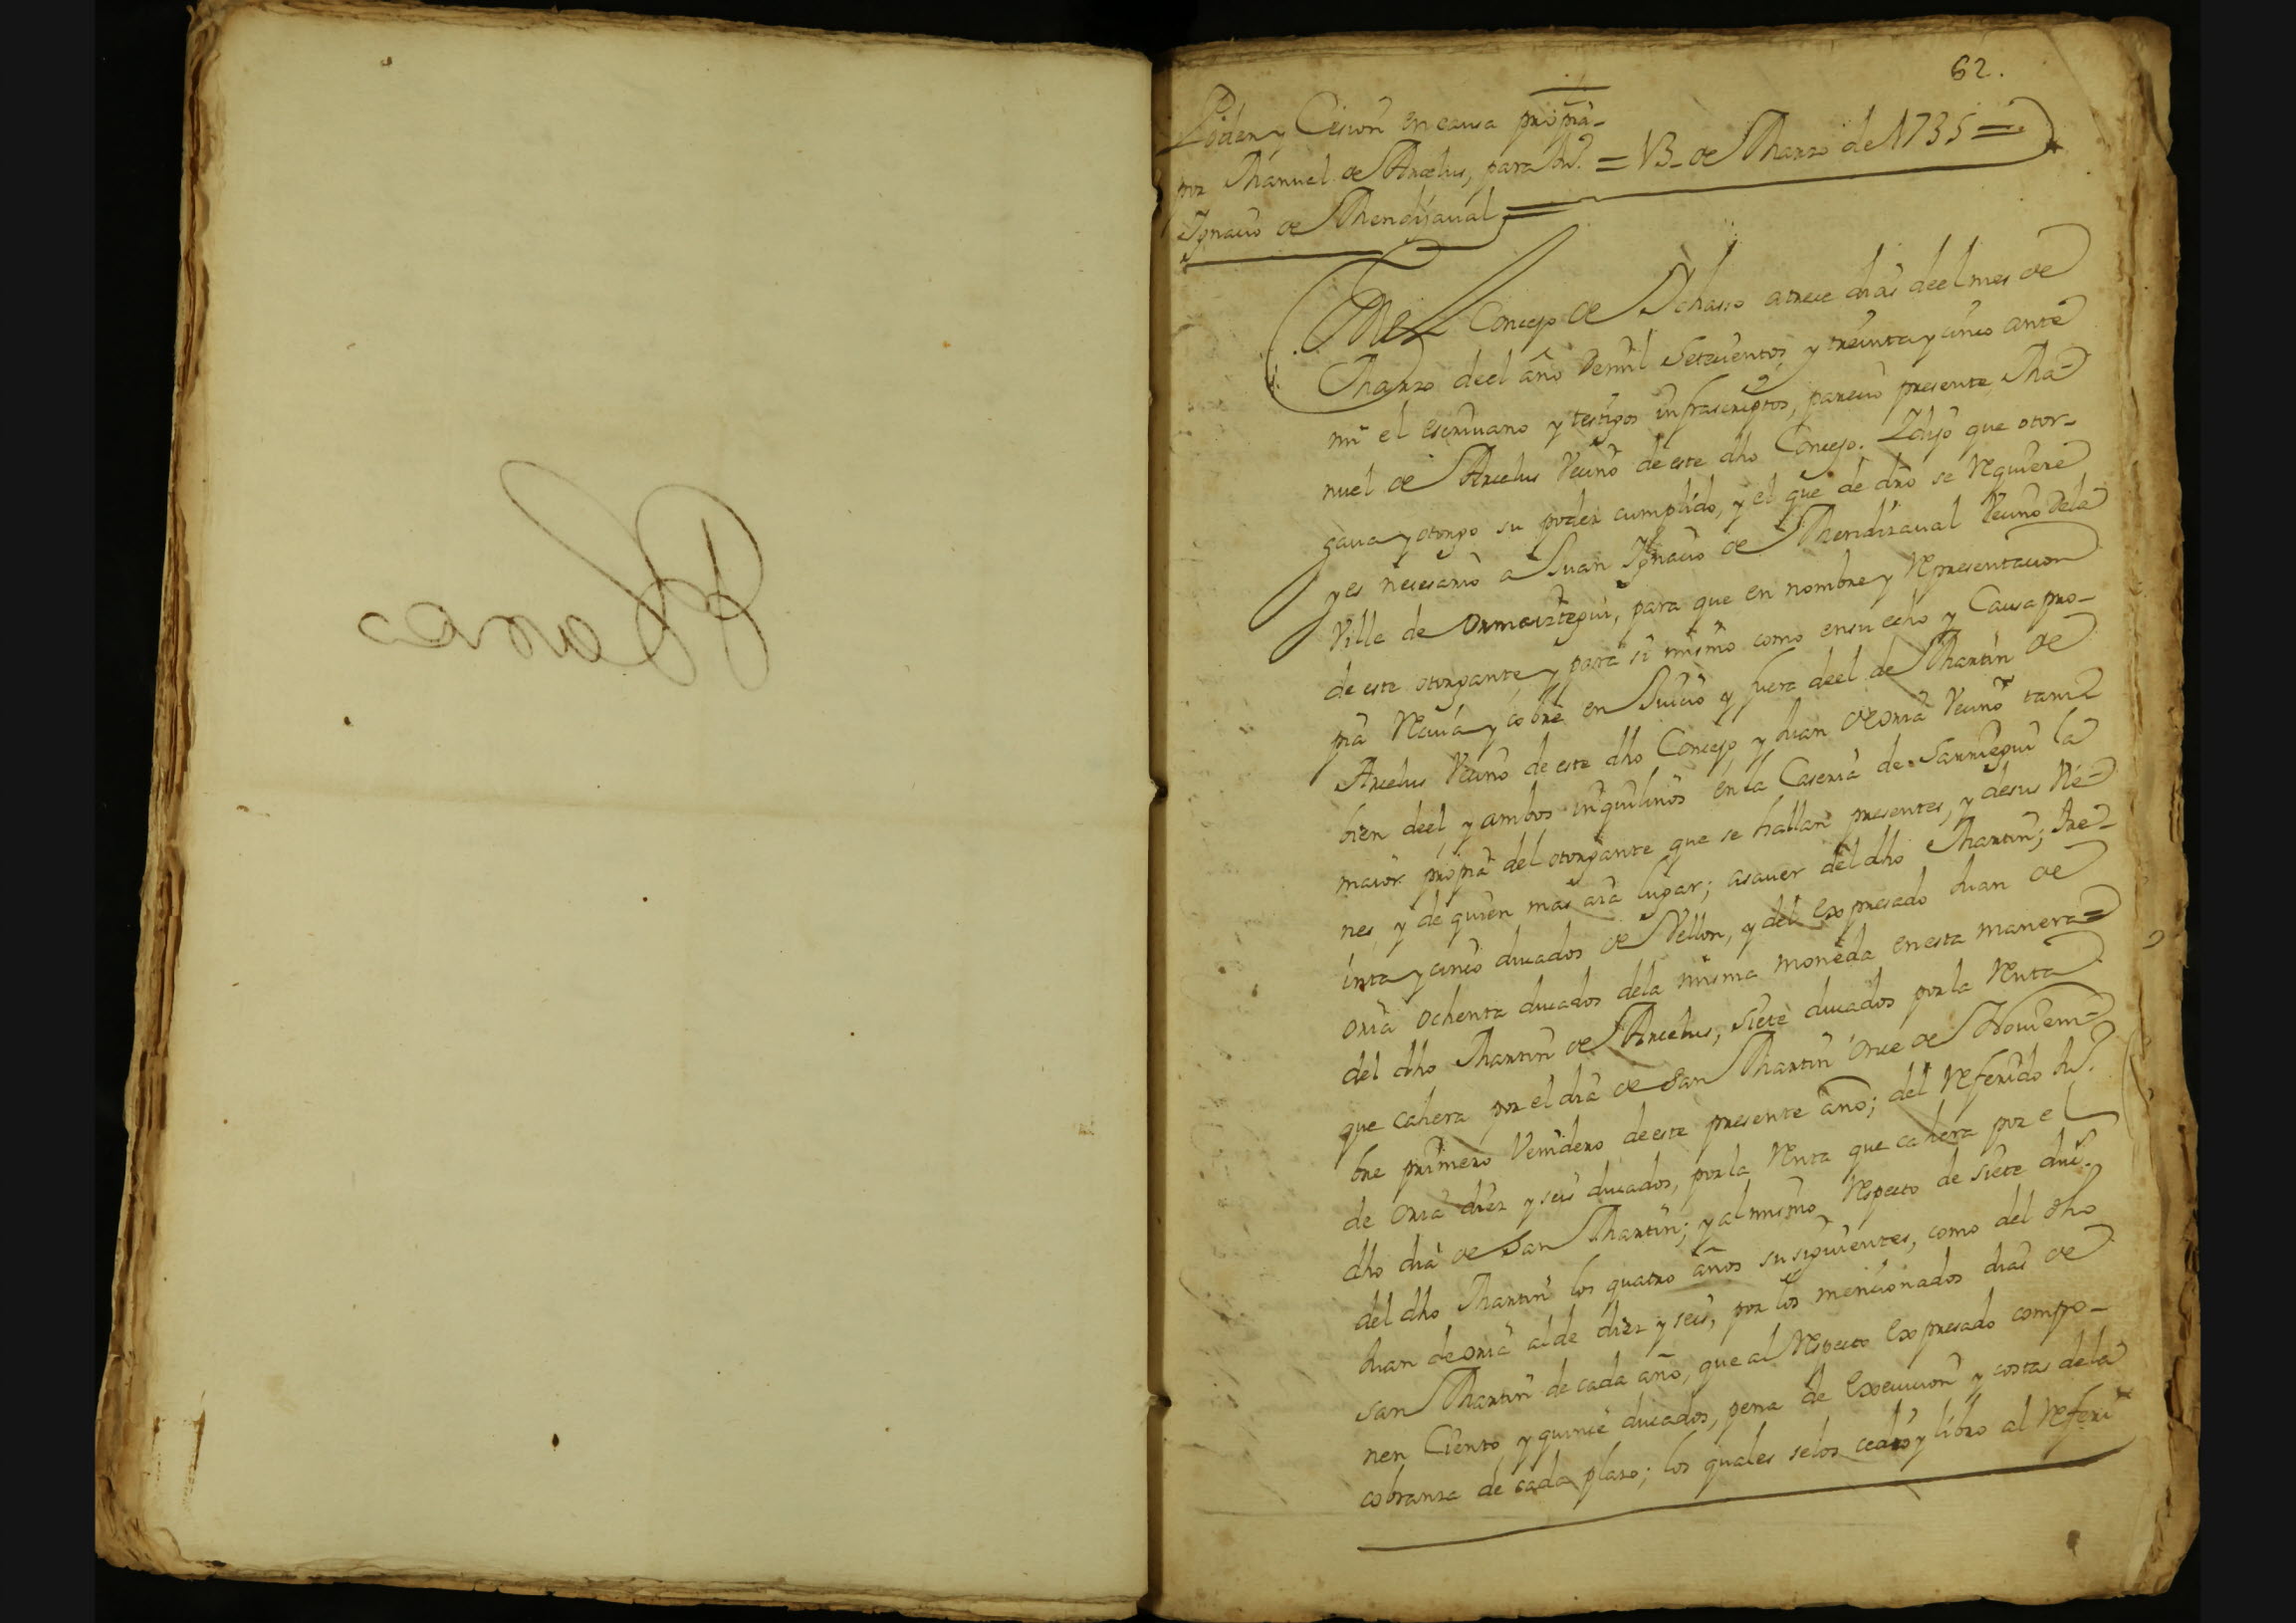 62.
Poder y Cesion en causa propia
por Manuel de Arcelus, para Ju.º = 13 de Marzo de 1735 =
Ignacio de Mendizaual =
En el Concejo de Ychasso a trece dias de el mes de
Marzo de el año de mil Setecientos y treinta y cinco ante
mi el escriuano y testigos infrascriptos, parecio presente Ma=
nuel de Arcelus Vecino de este dho Concejo. Y dijo que otor-
gaua y otorgo su poder cumplido, y el que de dro se requiere
y es necesario a Juan Ignacio de Mendizaual Vecino de la
Villa de Ormaiztegui, para que en nombre y representacion
de este otorgante y para si mismo como en su echo y Causa pro-
pia reciua y cobre en Juicio y fuera de el de Martin de
Arcelus Vecino de este dho Concejo y Juan de Oria Vecino tam=
bien de el, y ambos inquilinos en la Caseria de Sarriegui la
maior propia del otorgante que se hallan presentes, y de sus Vie=
nes, y de quien mas aia lugar; asauer del dho Martin; tre-
inta y cinco ducados de Vellon, y del expresado Juan de
Oria ochenta ducados de la misma moneda en esta manera=
del dho Martin de Arcelus, siete ducados por la renta
que cahera por el dia de San Martin Once de Nouiem=
bre primero Venidero de este presente año; del referido Ju.º
de Oria diez y seis ducados, por la renta que cahera por el
dho dia de San Martin; y al mismo respecto de siete du.s
del dho Martin los quatro años subsiguientes, como del dho
Juan de Oria al de diez y seis, por los mencionados dias de
San Martin de cada año, que al respecto expresado compo-
nen Ciento y quince ducados, pena de execucion y costas de la
cobranza de cada plazo; los quales se los cedio y libro al referi